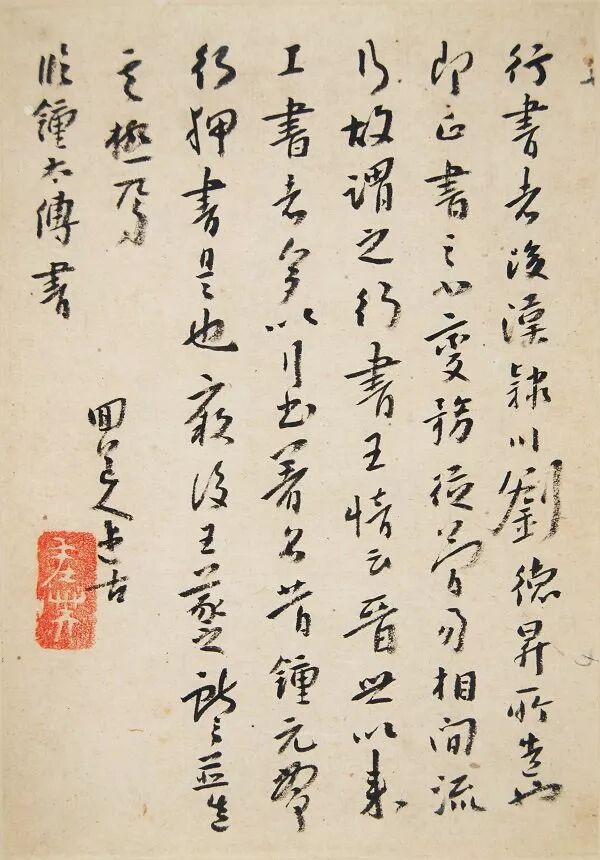 行書者後漢川劉德昇所造也
即正書之小變務從簡易相間流
行故謂之行書王愔云晉世以來
工書者多以行書著名昔鍾元常
行押書是也厥後王羲之獻之並造
其極焉
臨鍾太傅書
回道人